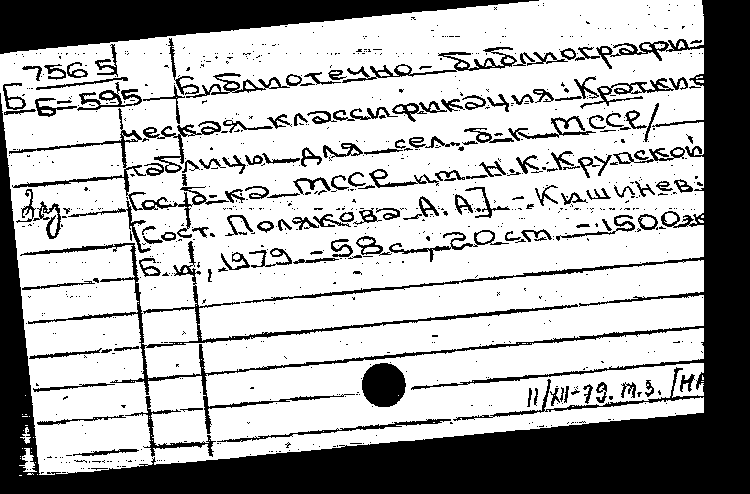 7565
Б
Б-595
Библиотечно-библиографи-
ческая классификация: Краткие
таблицы для сел. б-к МССР/
Гос. б-ка МССР им Н.К.Крупской
[Сост. Полякова А.А.] - Кишинев:
Б.и., 1979. - 58 с.; 20 ст. - 1500эк
II/XII-79. т.з. [НА